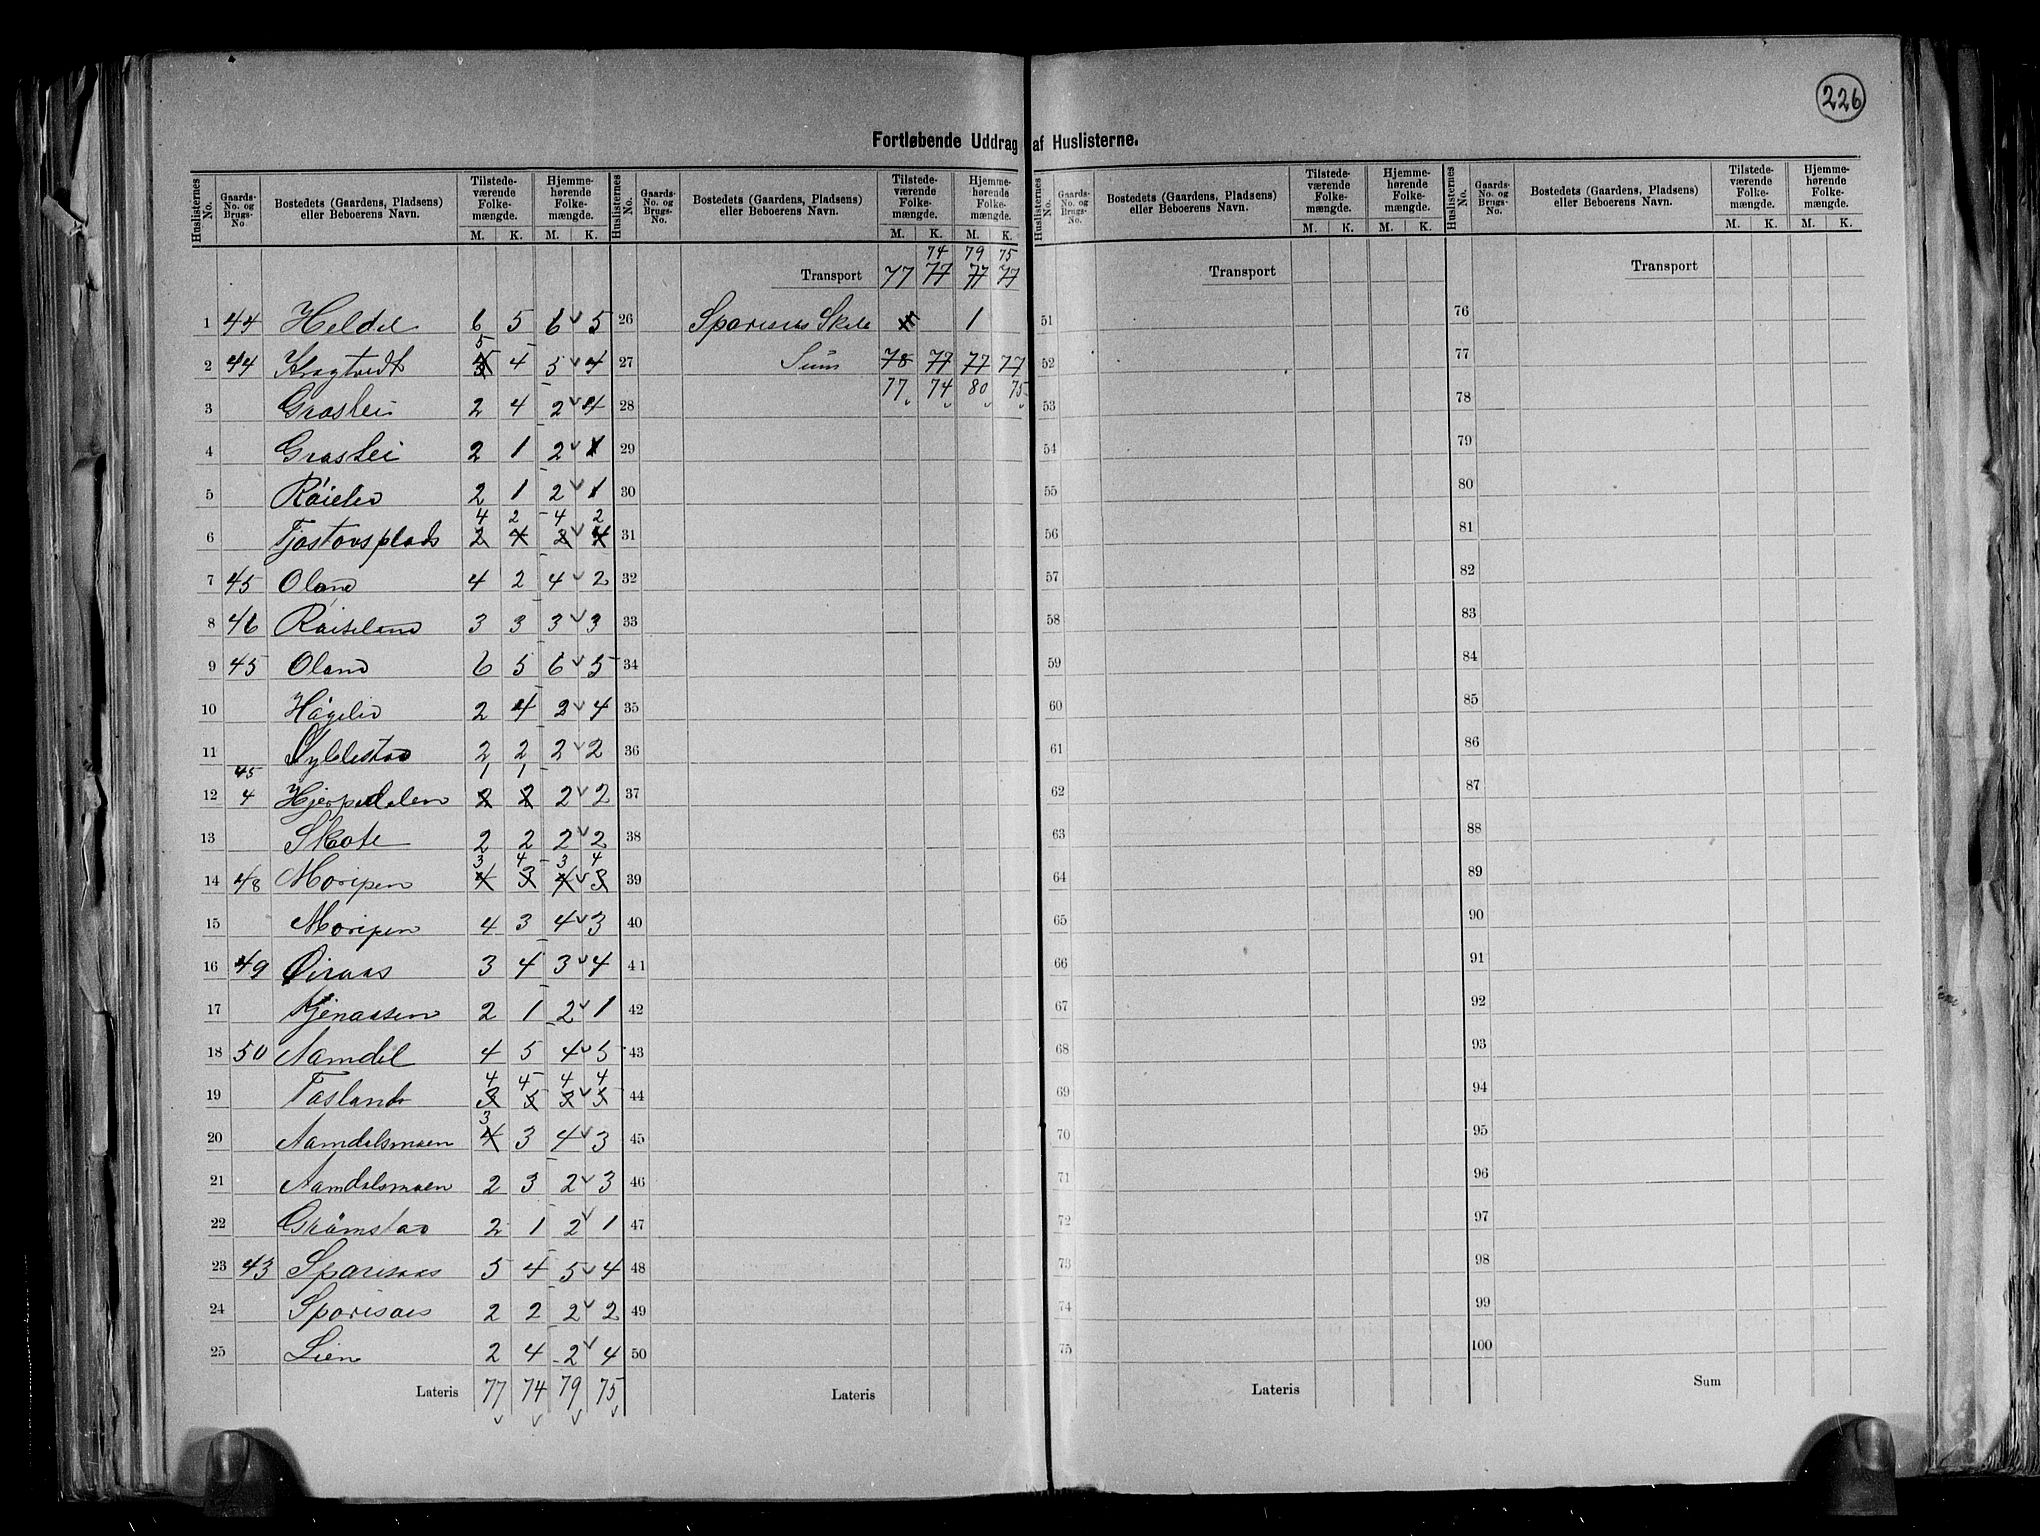 226
Fortløbende Uddrag af Huslisterne.
Huslisternes No. | Gaards-No. og Brugs-No | Bostedets (Gaardens, Pladsens) eller Beboerens Navn. | Tilstedeværende Folkemængde. M. K. | Hjemmehørende Folkemængde. M. K.
1 44 Heldal 6 5 6 5
2 44 Kragtvedt 5 4 5 4
3 Graslei 2 4 2 4
4 Graslei 2 1 2 1
5 Røielid 2 1 2 1
4 2 4 2
6 Tjostovsplads 2 4 2 4
7 45 Oland 4 2 4 2
8 46 Røiseland 3 3 3 3
9 45 Oland 6 5 6 5
10 Høgelid 2 4 2 4
11 2 2 2 2
45 1 1
12 4 Hjerpedalen 2 2 2 2
13 Skote 2 2 2 2
3 4 3 4
14 48 Moripen 4 3 4 3
15 Moripen 4 3 4 3
16 49 Øiraas 3 4 3 4
17 Kjenaasen 2 1 2 1
18 50 Aamdal 4 5 4 5
4 4 4 4
19 Tasland 3 5 3 5
3
20 Aamdalsmoen 4 3 4 3
21 Aamdalsmoen 2 3 2 3
22 Grømstad 2 1 2 1
23 43 Sparisaas 5 4 5 4
24 Sparisaas 2 2 2 2
25 Lien 2 4 2 4
Lateris 77 74 79 75
Huslisternes No. | Gaards-No. og Brugs-No. | Bostedets (Gaardens, Pladsens) eller Beboerens Navn. | Tilstedeværende Folkemængde. M. K. | Hjemmehørende Folkemængde. M. K.
74 79 75
Transport 77 77 77 77
26 1
27 Sum 78 77 77 77
77 74 80 75
28
29
30
31
32
33
34
35
36
37
38
39
40
41
42
43
44
45
46
47
48
49
50
Lateris
Huslisternes No. | Gaards-No. og Brugs-No. | Bostedets (Gaardens, Pladsens) eller Beboerens Navn. | Tilstedeværende Folkemængde. M. K. | Hjemmehørende Folkemængde. M. K.
Transport
51
52
53
54
55
56
57
58
59
60
61
62
63
64
65
66
67
68
69
70
71
72
73
74
75
Lateris
Huslisternes No. | Gaards-No. og Brugs-No. | Bostedets (Gaardens, Pladsens) eller Beboerens Navn. | Tilstedeværende Folkemængde. M. K. | Hjemmehørende Folkemængde. M. K.
Transport
76
77
78
79
80
81
82
83
84
85
86
87
88
89
90
91
92
93
94
95
96
97
98
99
100
Sum